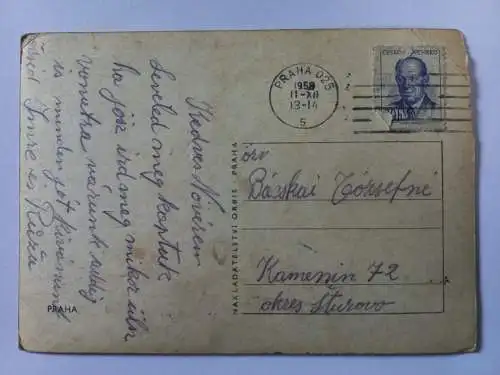 Kedves Nővérem
Leveled meg kaptuk
ha jősz ird meg mikor ülsz
vonatra várunk addig
is minden jót kivánunk
Imre és Réza
PRAHA
NAKLADATELSTVÍ ORBIS PRAHA
PRAHA 025
1958
11-XII
13-14
5
ČESKOSLOVENSKO
özv
Bácskai Józsefné
Kamenin 72
okres Šturovo